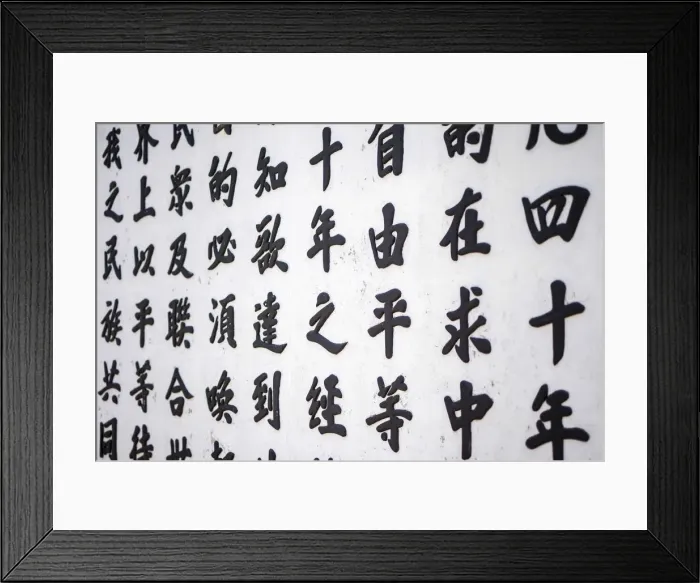 凡四十年
的在求中
自由平等
十年之經
知欲達到
的必須喚
民衆及聯合世
界上以平等待
我之民族共同